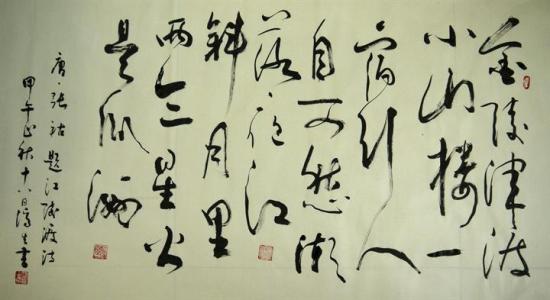 金陵津渡
小山樓一
宿行人
自可愁潮
落夜江
斜月里
两三星火
是瓜洲
唐·張祜 題江陵渡詩
甲午正秋十八日生書